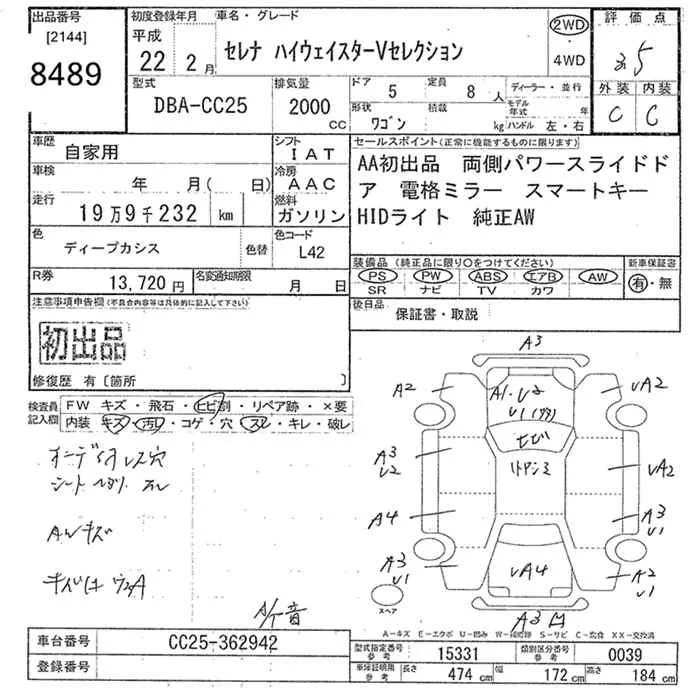 出品番号 初度登録年月 車名・グレード 評価点
[2144] 平成 2WD
8489 22年 2月 セレナ ハイウェイスターVセレクション ・ 4WD 3.5
型式 排気量 ドア 5 定員 8人 ディーラー・並行 外装 内装
DBA-CC25 2000cc 形状 ワゴン 積載 kg モデル年式 年 ハンドル 左・右 C C
車歴 自家用 シフト IAT セールスポイント(正常に機能するものに限ります)
車検 年 月( 日) 冷房 AAC AA初出品 両側パワースライドド
走行 19万9千232 km 燃料 ガソリン ア 電格ミラー スマートキー
HIDライト 純正AW
色 ディープカシス 色替 色コード L42
装備品(純正品に限り○をつけてください) 新車保証書
R券 13,720円 名変通知期限 月 日 PS PW ABS エアB AW 有・無
SR ナビ TV カワ
注意事項申告欄(不具合内容等は具体的に記入して下さい) 後日品 保証書・取説
初出品
修復歴 有〔箇所 〕
検査員記入欄 FW キズ・飛石・ヒビ割・リペア跡・×要
内装 キズ・汚レ・コゲ・穴・スレ・キレ・破レ
オーディオレス穴
シート ヘタリ スレ
AWキズ
A3
A2 A1.U2 UA2
U1
ヒビ
A3 U2 UA2
A4 A3 U1
A3 U1 UA4 A2 U1
スペア
A3
A-キズ E-エクボ U-凹み W-補修跡 S-サビ C-腐食 XX-交換済
車台番号 CC25-362942
登録番号
型式指定番号 参考 15331 類別区分番号 参考 0039
車庫証明用 参考 長さ 474cm 幅 172cm 高さ 184cm